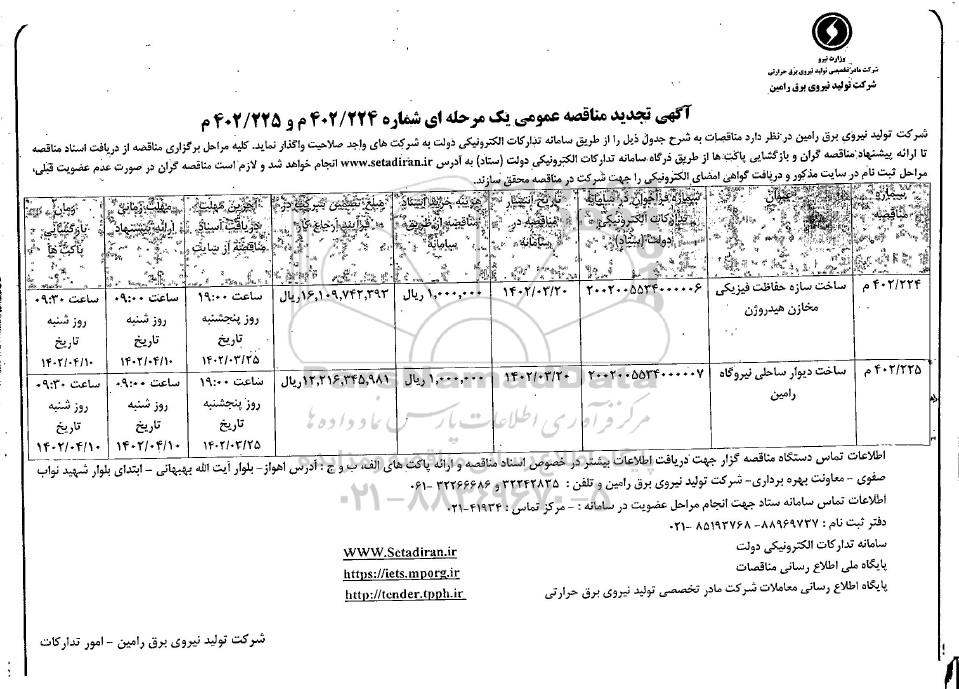 وزارت نیرو
شرکت مادر تخصصی تولید نیروی برق حرارتی
شرکت تولید نیروی برق رامین
آگهی تجدید مناقصه عمومی یک مرحله ای شماره ۴۰۲/۲۲۴ م و ۴۰۲/۲۲۵ م
شرکت تولید نیروی برق رامین در نظر دارد مناقصات به شرح جدول ذیل را از طریق سامانه تدارکات الکترونیکی دولت به شرکت های واجد صلاحیت واگذار نماید. کلیه مراحل برگزاری مناقصه از دریافت اسناد مناقصه
تا ارائه پیشنهاد مناقصه گران و بازگشایی پاکت ها از طریق درگاه سامانه تدارکات الکترونیکی دولت (ستاد) به آدرس www.setadiran.ir انجام خواهد شد و لازم است مناقصه گران در صورت عدم عضویت قبلی،
مراحل ثبت نام در سایت مذکور و دریافت گواهی امضای الکترونیکی را جهت شرکت در مناقصه محقق سازند.
شماره مناقصه
عنوان
شماره فراخوان در سامانه تدارکات الکترونیکی دولت (ستاد)
تاریخ انتشار مناقصه در سامانه
هزینه خرید اسناد مناقصه از طریق سامانه
مبلغ تضمین شرکت در فرآیند ارجاع کار
آخرین مهلت دریافت اسناد مناقصه از سایت
مهلت زمانی ارائه پیشنهاد
زمان بازگشایی پاکت ها
۴۰۲/۲۲۴ م
ساخت سازه حفاظت فیزیکی مخازن هیدروژن
۲۰۰۲۰۰۵۵۳۴۰۰۰۰۰۶
۱۴۰۲/۰۳/۲۰
۱,۰۰۰,۰۰۰ ریال
۱۶,۱۰۹,۷۴۲,۳۹۳ ریال
ساعت ۱۹:۰۰ روز پنجشنبه تاریخ ۱۴۰۲/۰۳/۲۵
ساعت ۰۹:۰۰ روز شنبه تاریخ ۱۴۰۲/۰۴/۱۰
ساعت ۰۹:۳۰ روز شنبه تاریخ ۱۴۰۲/۰۴/۱۰
۴۰۲/۲۲۵ م
ساخت دیوار ساحلی نیروگاه رامین
۲۰۰۲۰۰۵۵۳۴۰۰۰۰۰۷
۱۴۰۲/۰۳/۲۰
۱,۰۰۰,۰۰۰ ریال
۱۲,۲۱۶,۳۴۵,۹۸۱ ریال
ساعت ۱۹:۰۰ روز پنجشنبه تاریخ ۱۴۰۲/۰۳/۲۵
ساعت ۰۹:۰۰ روز شنبه تاریخ ۱۴۰۲/۰۴/۱۰
ساعت ۰۹:۳۰ روز شنبه تاریخ ۱۴۰۲/۰۴/۱۰
ParsNamadData
مرکز فرآوری اطلاعات پارس نماد داده ها
۰۲۱-۸۸۳۴۹۶۷۰-۵
اطلاعات تماس دستگاه مناقصه گزار جهت دریافت اطلاعات بیشتر در خصوص اسناد مناقصه و ارائه پاکت های الف، ب و ج : آدرس اهواز- بلوار آیت الله بهبهانی - ابتدای بلوار شهید نواب
صفوی - معاونت بهره برداری- شرکت تولید نیروی برق رامین و تلفن : ۳۲۲۴۲۸۳۵ و ۳۲۲۶۶۶۸۶ -۰۶۱
اطلاعات تماس سامانه ستاد جهت انجام مراحل عضویت در سامانه : - مرکز تماس : ۴۱۹۳۴-۰۲۱
دفتر ثبت نام : ۸۸۹۶۹۷۳۷- ۸۵۱۹۳۷۶۸ -۰۲۱
سامانه تدارکات الکترونیکی دولت WWW.Setadiran.ir
پایگاه ملی اطلاع رسانی مناقصات https://iets.mporg.ir
پایگاه اطلاع رسانی معاملات شرکت مادر تخصصی تولید نیروی برق حرارتی http://tender.tpph.ir
شرکت تولید نیروی برق رامین - امور تدارکات